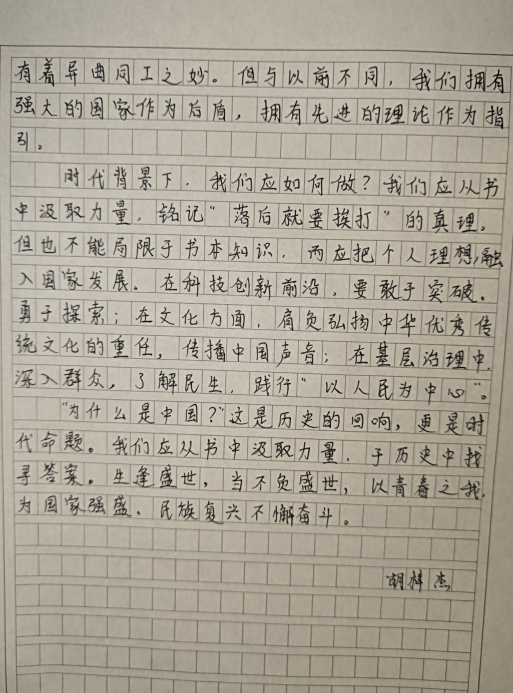 有着异曲同工之妙。但与以前不同，我们拥有
强大的国家作为后盾，拥有先进的理论作为指
引。
时代背景下，我们应如何做？我们应从书
中汲取力量，铭记“落后就要挨打”的真理，
但也不能局限于书本知识，而应把个人理想融
入国家发展。在科技创新前沿，要敢于突破，
勇于探索；在文化方面，肩负弘扬中华优秀传
统文化的重任，传播中国声音；在基层治理中，
深入群众，了解民生，践行“以人民为中心”。
“为什么是中国？”这是历史的回响，更是时
代命题。我们应从书中汲取力量，于历史中找
寻答案。生逢盛世，当不负盛世，以青春之我，
为国家强盛、民族复兴不懈奋斗。
胡梓杰